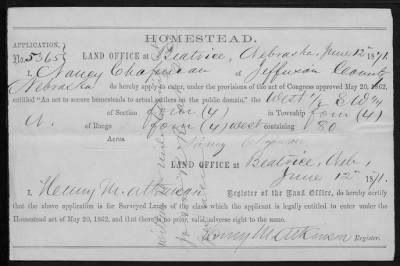 HOMESTEAD.
APPLICATION, No. 5365
LAND OFFICE at Beatrice, Nebraska, June 12th 1871.
I, Nancy Chapman of Jefferson County
Nebraska do hereby apply to enter, under the provisions of the act of Congress approved May 20, 1862,
entitled "An act to secure homesteads to actual settlers on the public domain," the West ½ S W ¼
of Section four (4) in Township four (4)
N. of Range four (4) west containing 80
Acres.
Nancy Chapman
LAND OFFICE at Beatrice, Neb,
June 12th 1871.
I, Henry M. Atkinson Register of the Land Office, do hereby certify
that the above application is for Surveyed Lands of the class which the applicant is legally entitled to enter under the
Homestead act of May 20, 1862, and that there is no prior, valid, adverse right to the same.
Henry M. Atkinson Register.